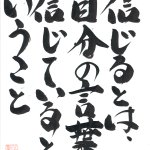 信じるとは、
自分の言葉
信じていると
いうこと